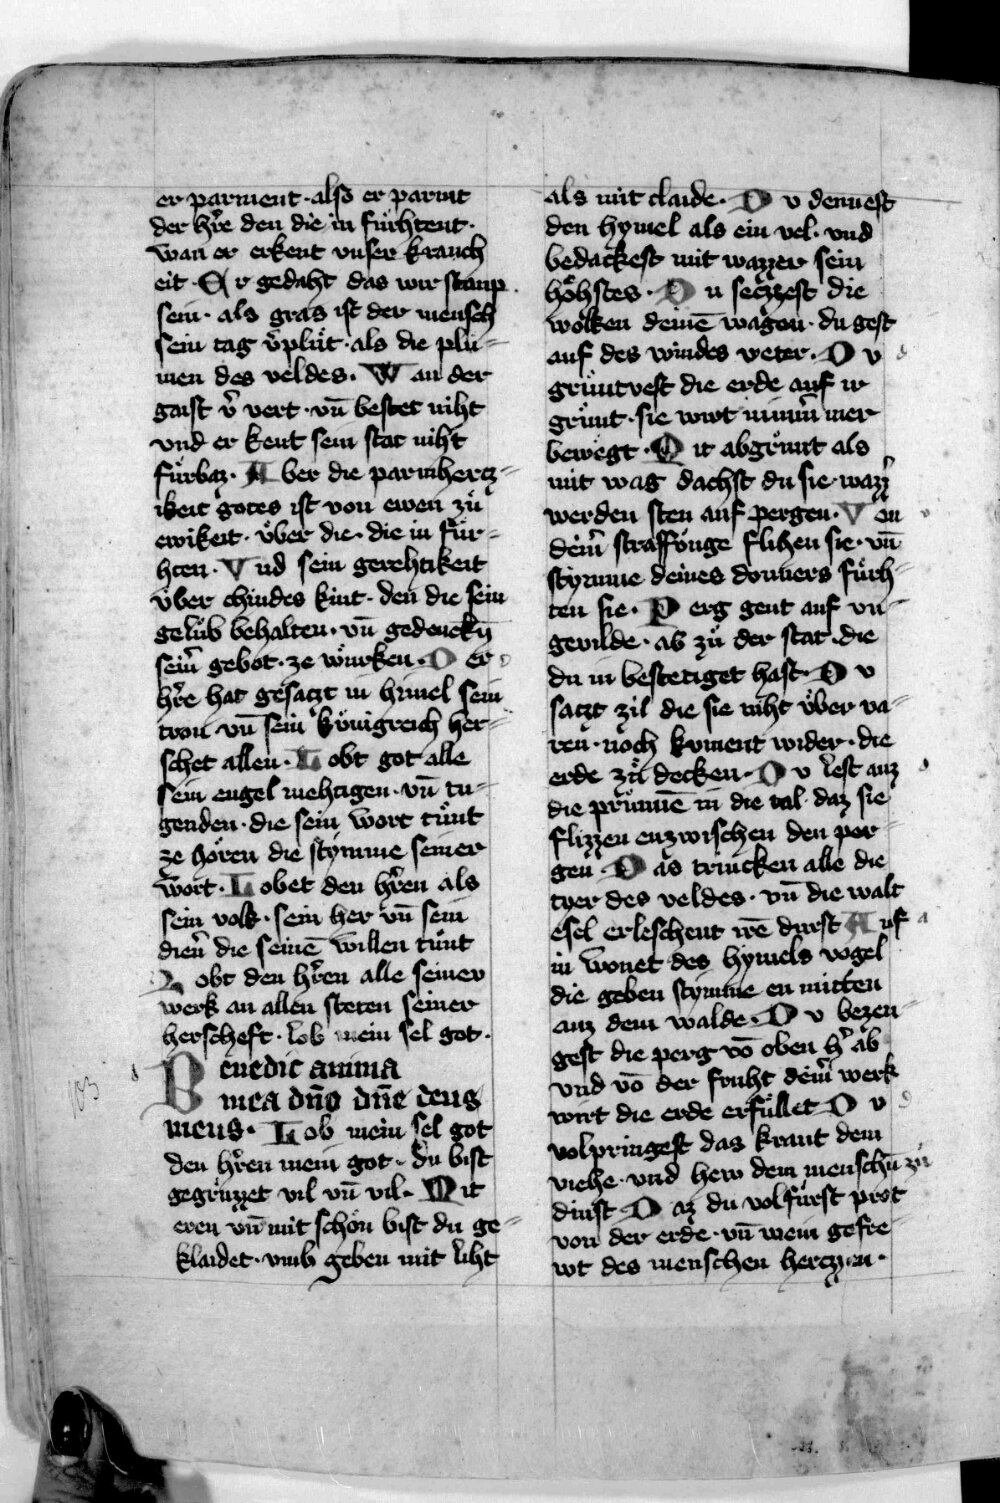 er parment · also er parmt
der hr̄e den die in fürhtent ·
wan er erkent vnser kranch
eit · Er gedaht das wir staup
sein · als gras ist der mensch
sein tag v̄plüt · als die plu=
men des veldes · Wan der
gaist v̄ vert · vn̄ bestet niht
vnd er kent sein stat niht
fürbaz · Aber die parmhercz=
ikeit gotes ist von ewen zů
ewikeit · über die · die in für=
hten · Vnd sein gerehtikeit
über chindes kint · den die sein
gelüb behalten · vn̄ gedenckn̄
seīr gebot · ze würken · Der
hr̄e hat gesaczt in himel sein
tron vn̄ sein künigreich her=
schet allen · Lobt got alle
sein engel mehtigen · vn̄ tu=
genden · die sein wort tünt
ze hören die stymme seiner
wort · Lobet den hr̄en als
sein volk · sein her vn̄ sein
dien̄ die seinē willen tünt
Lobt den hr̄en alle seiner
werk an allen steten seiner
herscheft · lob mein sel got ·
103
Benedic anima
mea dn̄o dn̄e deus
meus · Lob mein sel got
den hr̄en mein got · du bist
gegrüzzet vil vn̄ vil · Mit
eren vn̄ mit schön bist du ge=
klaidet · vmb geben mit liht
als mit claide · Du dennest
den hymel als ein vel · vnd
bedackest mit wazzer sein
höhstes · Du seczzest die
wolken deinē wagen · du gest
auf des windes veter · Du
grüntvest die erde auf ir
grünt · sie wirt nimm̄ mer
bewegt · Dit abgrünt als
mit wag dachst du sie · wazz̄
werden sten auf pergen · Von
deīr straffönge flihen sie · vn̄
stymme deines donners fürh=
ten sie · Perg gent auf vn̄
gevilde · ab zů der stat die
du in bestetiget hast · Du
saczt zil die sie niht über va=
ren · noch kument wider · die
erde zů decken · Du lest auz
die prünnē in die tal · daz sie
flizzen enzwischen den per=
gen · Das trincken alle die
tyer des veldes · vn̄ die walt
esel erleschent irē durst Auf
in wonet des hymels vogel
die geben stymme en mitten
auz dem walde · Du bezen=
gest die perg vō oben h̄ ab
vnd vō der fruht deīr werk
wirt die erde erfüllet Du
volpringest das kraut dem
viehe · vnd hew dem menschn̄ zů
dinst · Daz du volfürst prot
von der erde · vn̄ wein gefre=
wt des menschen herczen ·